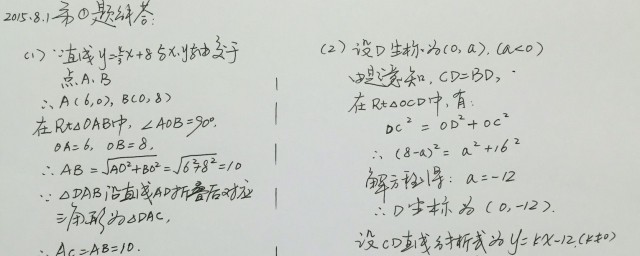 2015.8.1 第①题解答:
(1) ∵直线y=
x+8与x.y轴交于
点A.B
∴A(6,0), B(0,8)
在Rt△OAB中, ∠AOB=90°.
OA=6, OB=8,
∴AB=√AO²+BO²=√6²+8²=10
∵△DAB沿直线AD折叠后对应
三角形为△DAC,
∴AC=AB=10.
(2) 设D坐标为(0,a).(a<0)
由题意知, CD=BD,
在Rt△OCD中,有:
DC²=OD²+OC²
∴(8-a)²=a²+16²
解方程得: a=-12
∴D坐标为(0,-12).
设CD直线解析式为y=kx-12.(k≠0)